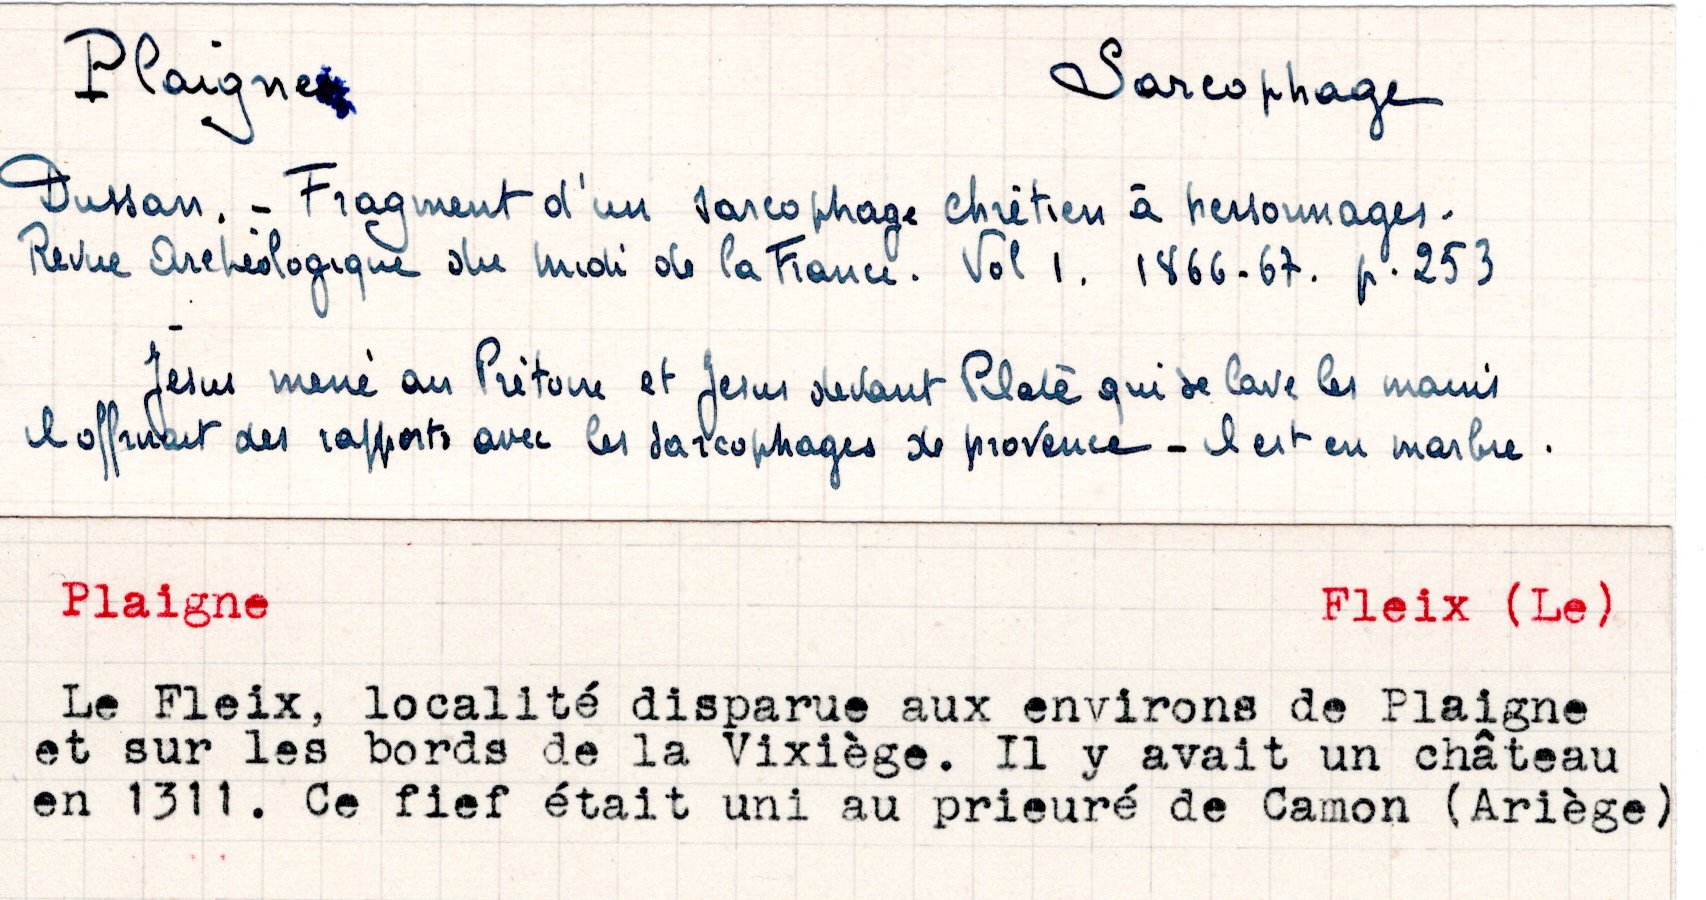 Plaigne Sarcophage
Dussan. - Fragment d'un sarcophage chrétien à personnages.
Revue Archéologique du midi de la France. Vol 1. 1866-67. p. 253
Jésus mené au Prétoire et Jésus devant Pilate qui se lave les mains
Il offrirait des rapports avec les sarcophages de provence - Il est en marbre.
Plaigne Fleix (Le)
Le Fleix, localité disparue aux environs de Plaigne
et sur les bords de la Vixiège. Il y avait un château
en 1311. Ce fief était uni au prieuré de Camon (Ariège)